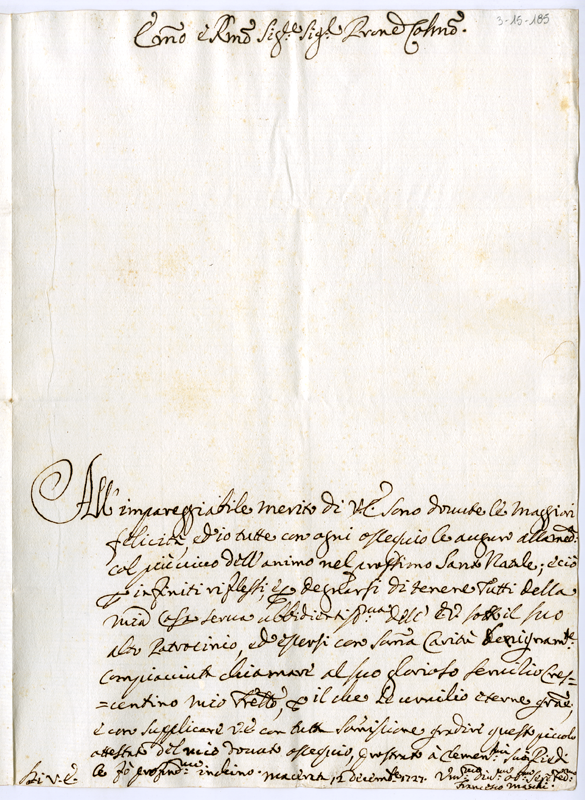 3-15-185
Emō e Rmō Sigr̄e Sigr̄ Pron̄e Colmō.
All' impareggiabile merito di V.E. sono dovute le maggiori
felicità, ed io tutte con ogni ossequio le auguro alla med:
col più vivo dell'animo nel prossimo Santo Natale; e ciò
infiniti riflessi, e degnarsi di tenere Tutti della
mia Casa serva ubbidientis.ma dell' E.V. sotto il suo
alto Patrocinio, ed essersi con som̄a Carità benignam.te
compiaciuta chiamare al suo glorioso servizio Cres=
=centino mio Frēllo, il che le umilio eterne grazie,
e con supplicare V.E. con tutta som̄issione gradire questo piccolo
attestato del mio dovuto ossequio, prostrato à Clementmi suoi Piedi
le fò profond.mo inchino Macerata 12 decembre 1727.
Di V.E.
Francesco